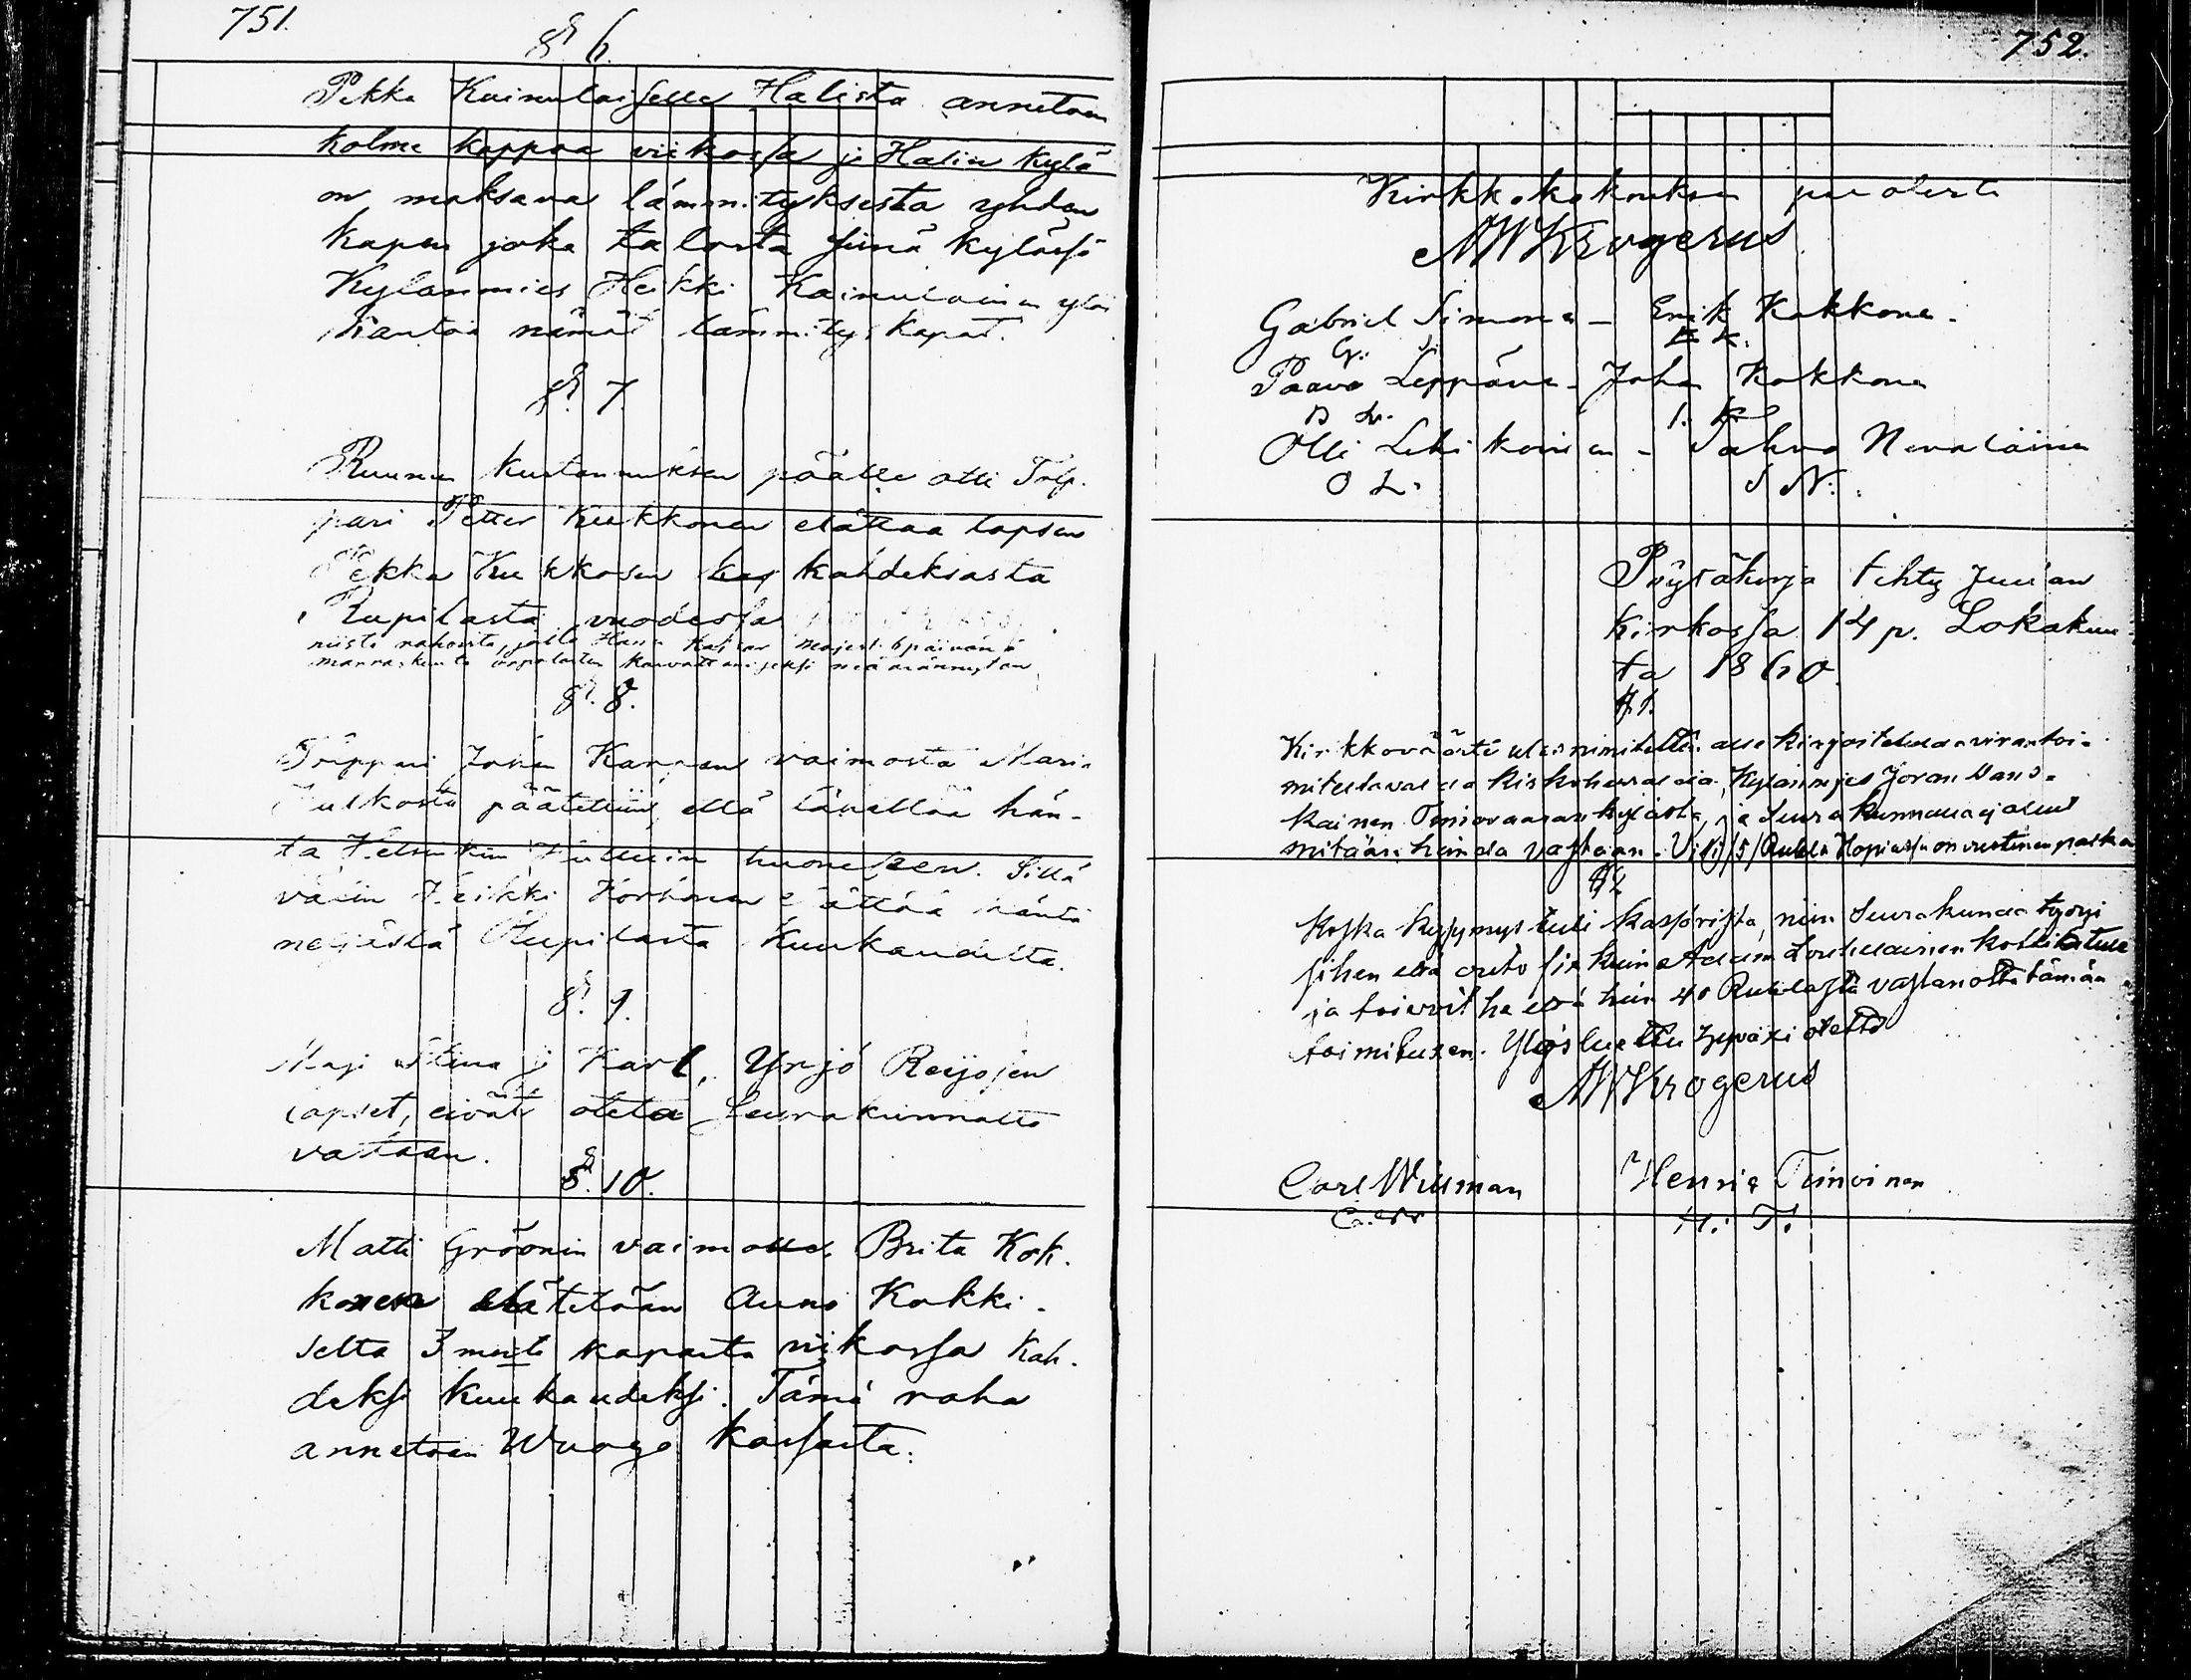 751.
§ 6.
Pekka Kainulaiselle Halista annetaan
Kolme kappaa viikossa ja Halin kylä
on maksava lämmityksestä yhden
kapan joka talosta siinä kylässä
Kylänmies Heikki Kainulainen ylös
kantaa nämät lämmitys kapat.
§. 7.
Ruunun kustannuksen päälle otti Trip-
pari Petter Kukkonen elättää lapsen
Pekka Kukkosen kahdeksasta
Rupilasta vuodessa
niistä rahoista, joita Hänen Keisar Majest. 6 päivänä
marraskuuta vapalasten kasvattamiseksi määrännyt on
§. 8.
Trippari Johan Karpen vaimosta Maria
Pulkosta päätettiin, että lähettää hän-
tä Helsinkin huoneseen. Sillä
väliin Heikki Korhonen elättää häntä
neljästä Rupilasta Kuukaudelta.
§. 9.
Maji Stina ja Karl, Yrjö Reijosen
lapset, eivät oteta Seurakunnalta
vastaan.
§. 10.
Matti Gröönin vaimolle Brita Kok-
konen elätetään Auno Kokki-
selta 3 kapasta viikossa Kah-
deksi Kuukaudeksi. Tämä raha
annetaan Waago kassasta.
752.
Kirkkokokouksen puolesta
AW Krogerus
Gabriel Simonen – Erik Kokkonen.
G. S. E. K.
Paavo Leppänen – Johan Kokkonen
P L. J. K
Olli Lehikoinen – Pahvo Nevalainen
O L. N.
Pöytäkirja tehty Juuan
Kirkossa 14 p. Lokakuu-
ta 1860.
§ 1.
Kirkkoväärti nimitettiin allekirjoitetulda virantoi-
mitettavalda kirkoherralda Kylänmies Joran Vans-
kainen Timovaaran kylästä, ja Seurakunnalla ej ollut
mitään händä vastaan. Viisi /5/ Rubla Hopiassa on vuotinen palka
§ 2
Koska kysymys tuli kassörista, niin Seurakunda tyytyi
siihen että outo Adam Louhelainen
ja toivoit he että hän 40 Rublasta vastanotta tämän
toimituxen. Ylösluettu hyväxi otettu
AW Krogerus
Carl Wiisman Henric Timoinen
C. W H. T.